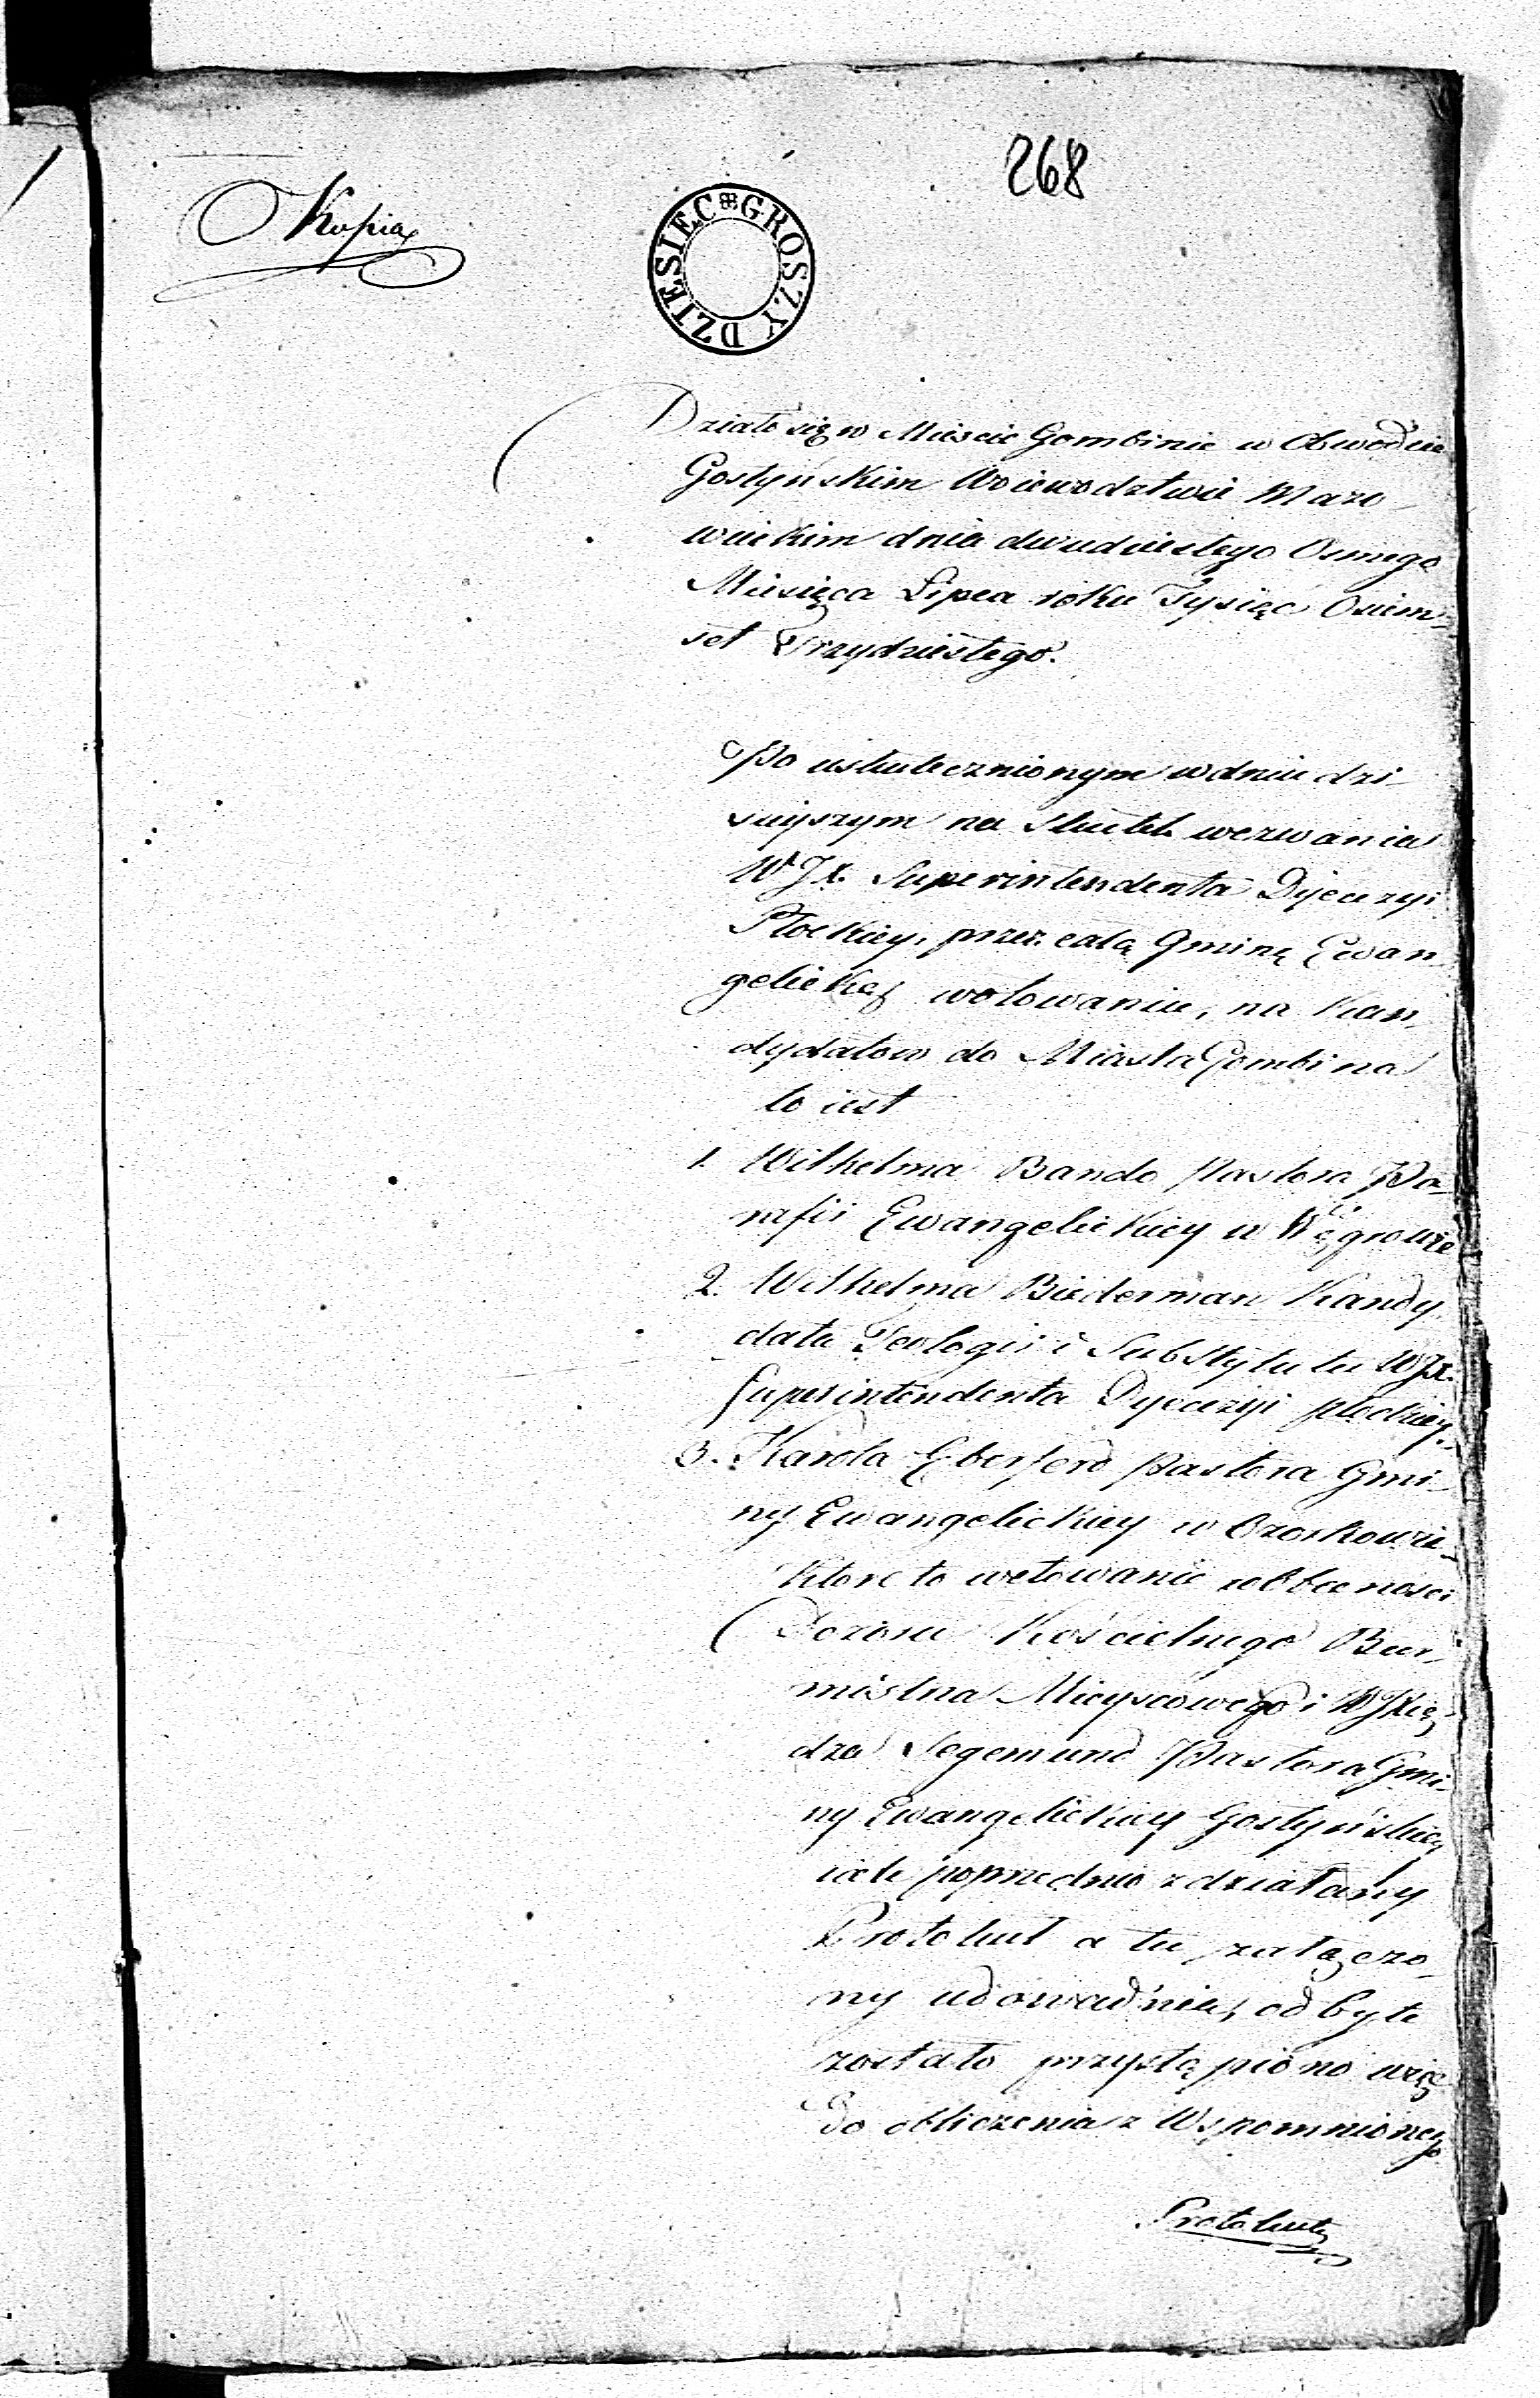 268
Kopia
DZIESIEC GROSZY
Działo się w Miescie Gombinie w Obwodzie
Gostyńskim Woiewodztwie Mazo-
wieckim dnia dwudziestego Osmego
Miesiąca Lipca roku Tysiąc Osiem-
set Trzydziestego.
Po uskutecznionym w dniu dzi-
sieyszym na skutek wezwania
WJX. Superintendenta Dyecezyi
Płockiey, przez całą Gminę Ewan-
gelicką wotowaniu, na Kan-
dydatow do Miasta Gombina
to iest
1. Wilhelma Bando Pastora Pa-
rafii Ewangelickiey w Węgrowie
2. Wilhelma Biederman Kandy-
data Teologii i Substytuta WJX.
Superintendenta Dyecezyi płockiey.
3. Karola Pastora Gmi-
ny Ewangelickiey w Ozorkowie
Ktore to wotowanie w obecnosci
Dozoru Kościelnego Bur-
mistrza Mieyscowego i WJXię-
dza Segemund Pastora Gmi-
ny Ewangelickiey Gostyńskiey
iak poprzednio zdziałany
Protokuł a tu załączo-
ny udowadnia, odbyte
zostało przystąpiono więc
do obliczenia z Wspomnionego
Protokułu